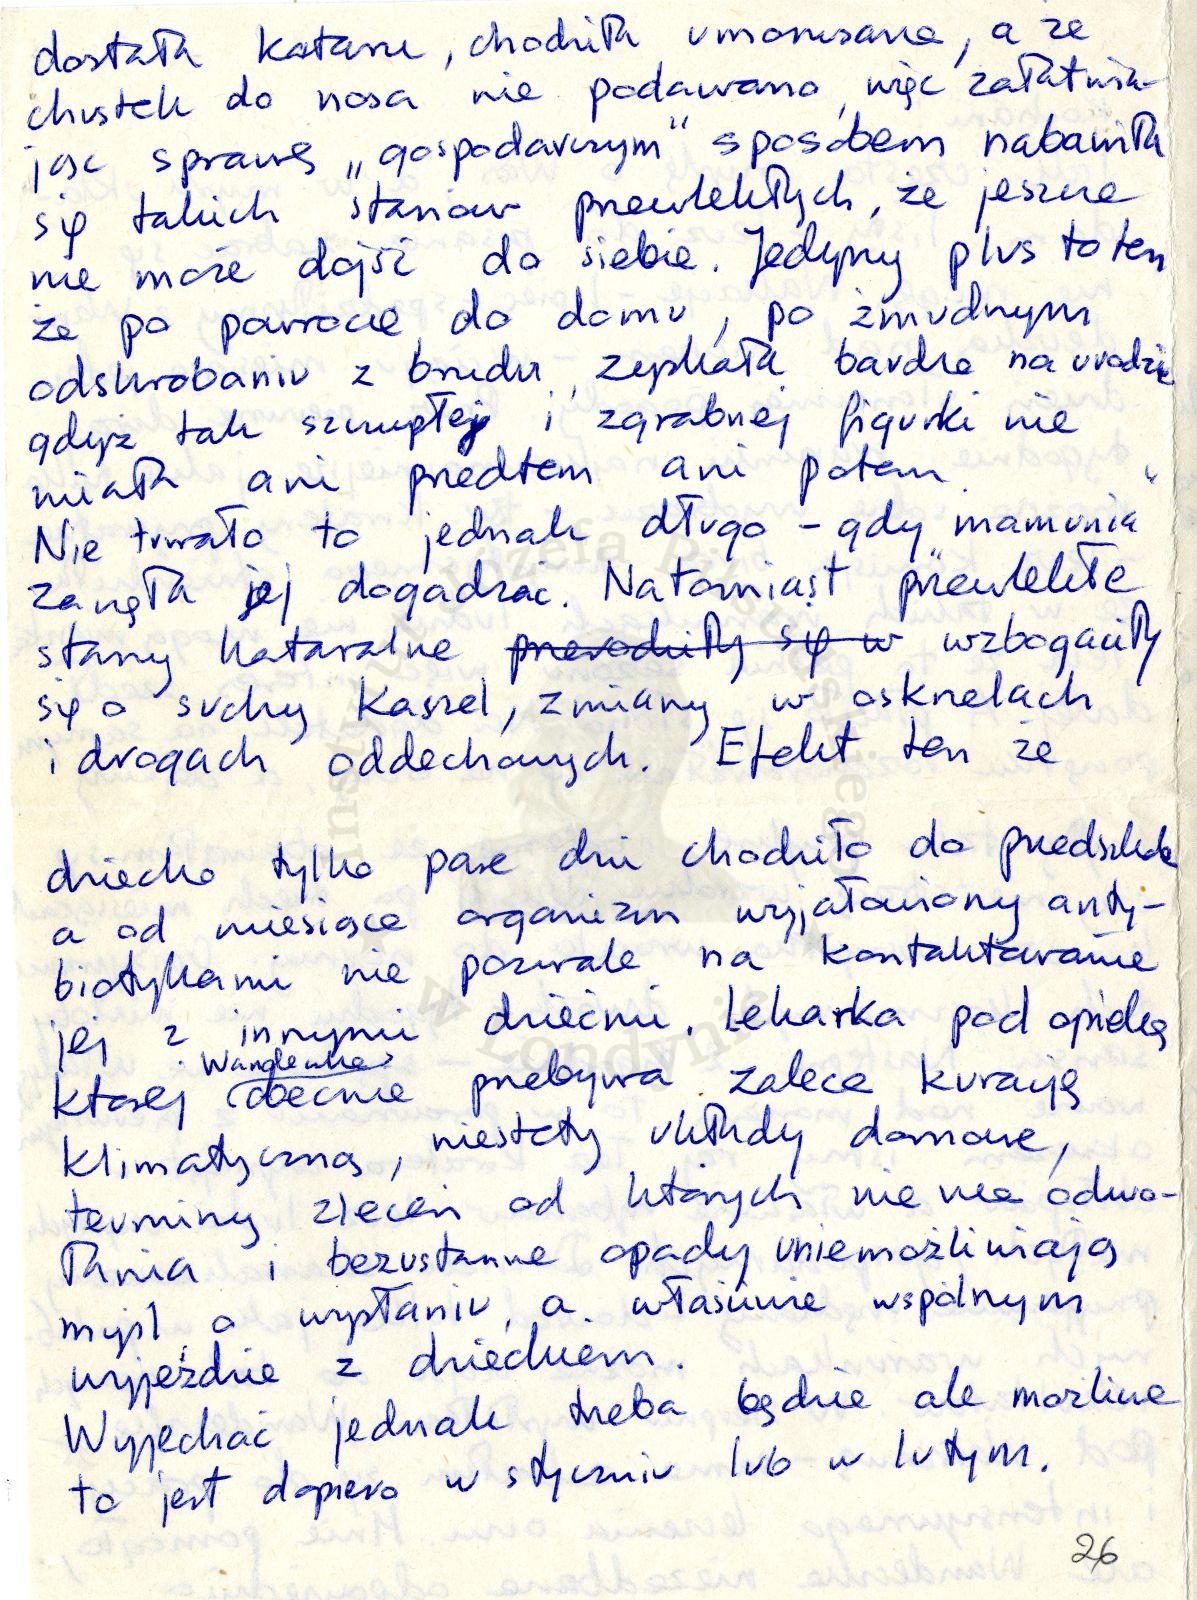 dostała kataru, chodziła umorusana, a że
chustek do nosa nie podawano, więc załatwia-
jąc sprawę „gospodarczym" sposobem nabawiła
się takich stanów przewlekłych, że jeszcze
nie może dojść do siebie. Jedyny plus to ten
że po powrocie do domu, po żmudnym
odskrobaniu z brudu, zyskała bardzo na urodzie
gdyż tak szczupłej i zgrabnej figurki nie
miała ani przedtem ani potem.
Nie trwało to jednak długo – gdy „mamunia"
zaczęła jej dogadzać. Natomiast przewlekłe
stany kataralne przerodziły się w wzbogaciły
się o suchy kaszel, zmiany w oskrzelach
i drogach oddechowych. Efekt ten że
dziecko tylko parę dni chodziło do przedszkola
a od miesiąca organizm wyjałowiony anty-
biotykami nie pozwala na kontaktowanie
jej z innymi dziećmi. Lekarka pod opieką
której obecnie Wandeczka przebywa zaleca kurację
klimatyczną, niestety układy domowe,
terminy zleceń od których nie ma odwo-
łania i bezustanne opady uniemożliwiają
myśl o wysłaniu, a właściwie wspólnym
wyjeździe z dzieckiem.
Wyjechać jednak trzeba będzie ale możliwe
to jest dopiero w styczniu lub w lutym.
26
Instytut Józefa Piłsudskiego
w Londynie